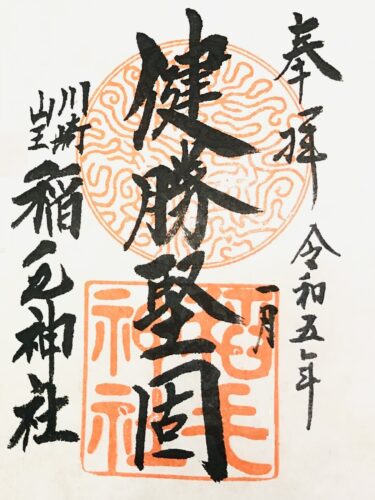 奉拝 令和五年
一月
健勝堅固
川崎
山王
稲毛神社
稲毛
神社